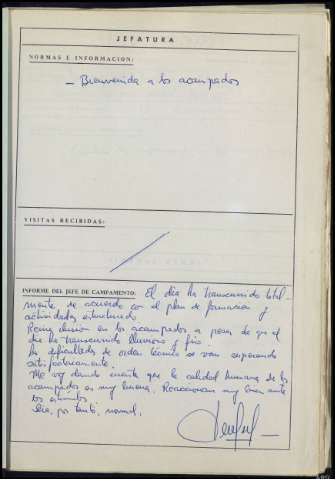 JEFATURA
NORMAS E INFORMACION:
- Bienvenida a los acampados
VISITAS RECIBIDAS:
INFORME DEL JEFE DE CAMPAMENTO: El día ha transcurrido total-
mente de acuerdo con el plan de formación y
actividades estructurado.
Reina ilusión en los acampados a pesar de que el
día ha transcurrido lluvioso y frío.
Las dificultades de orden técnico se van superando
satisfactoriamente.
Me voy dando cuenta que la calidad humana de los
acampados es muy buena. Reaccionan muy bien ante
los estímulos.
Día, por tanto, normal.